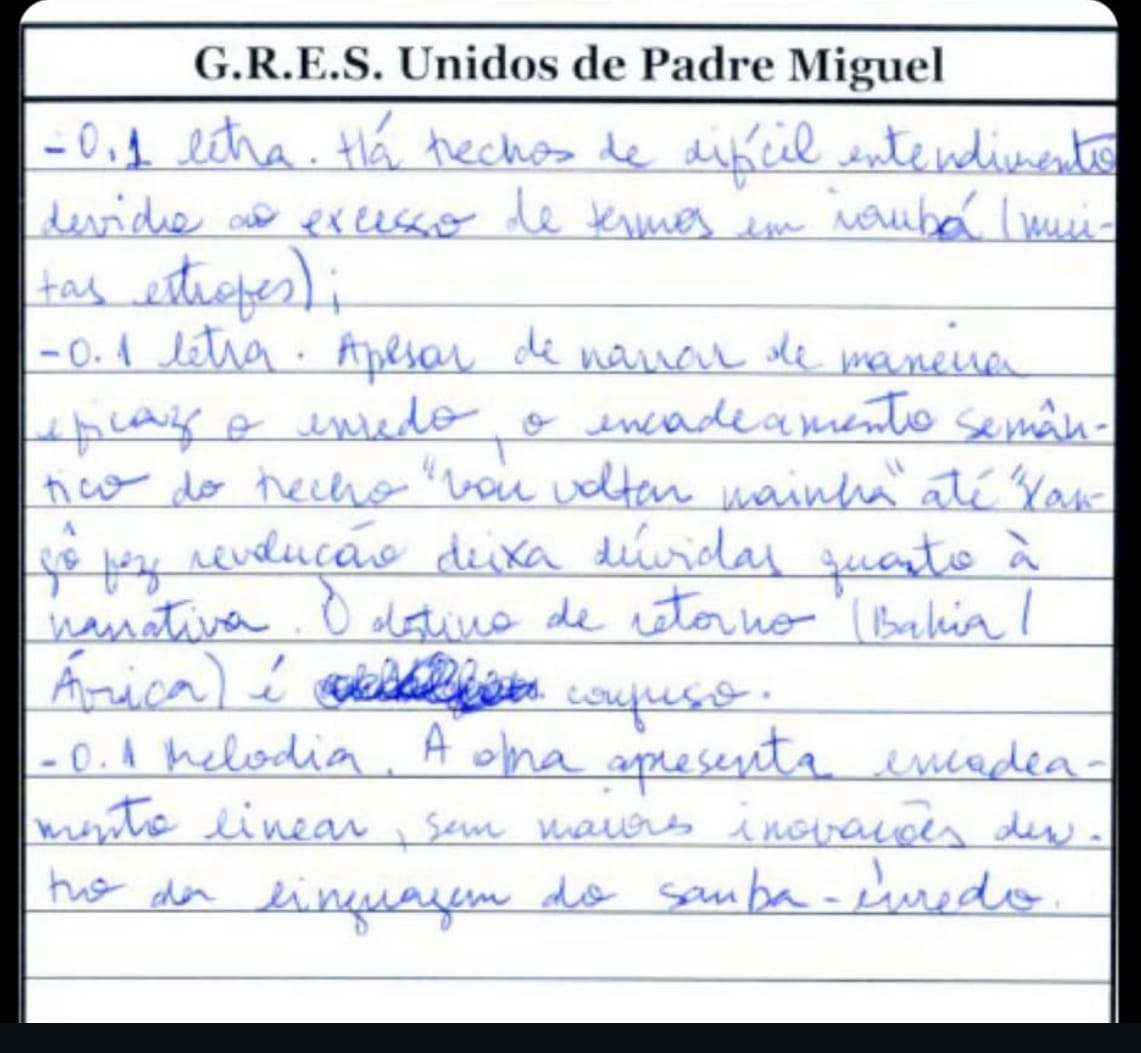 G.R.E.S. Unidos de Padre Miguel
-0.1 letra. Há trechos de difícil entendimento
devido ao excesso de termos em iorubá (mui-
tas estrofes);
-0.1 letra. Apesar de narrar de maneira
eficaz o enredo, o encadeamento semân-
tico do trecho "vou voltar mainha" até "Xan-
gô fez revolução deixa dúvidas quanto à
narrativa. O destino de retorno (Bahia /
África) é confuso.
-0.1 Melodia. A obra apresenta encadea-
mento linear, sem maiores inovações den-
tro da linguagem do samba-enredo.